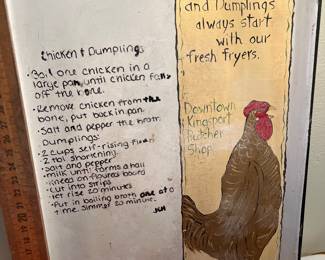 Chicken & Dumplings
• Boil one chicken in a
large pan until chicken falls
off the bone.
• Remove chicken from the
bone, put back in pan.
• Salt and pepper the broth
Dumplings
• 2 cups self-rising flour
• 2 tbl shortening
• salt and pepper
• milk until forms a ball
• knead on floured board
• cut into strips
• let rise 20 minutes
• Put in boiling broth one at a
time. Simmer 20 minute.
JCH
and Dumplings
always start
with our
fresh fryers.
Downtown
Kingsport
Butcher
Shop